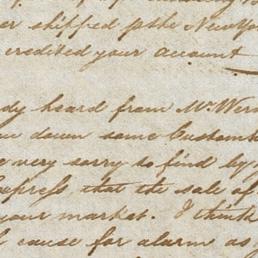 er shipped p the New
credited your account
dy heard from Mr Wer
down some Custom
very sorry to find by
Express that the sale of
your market. I think
cause for alarm as